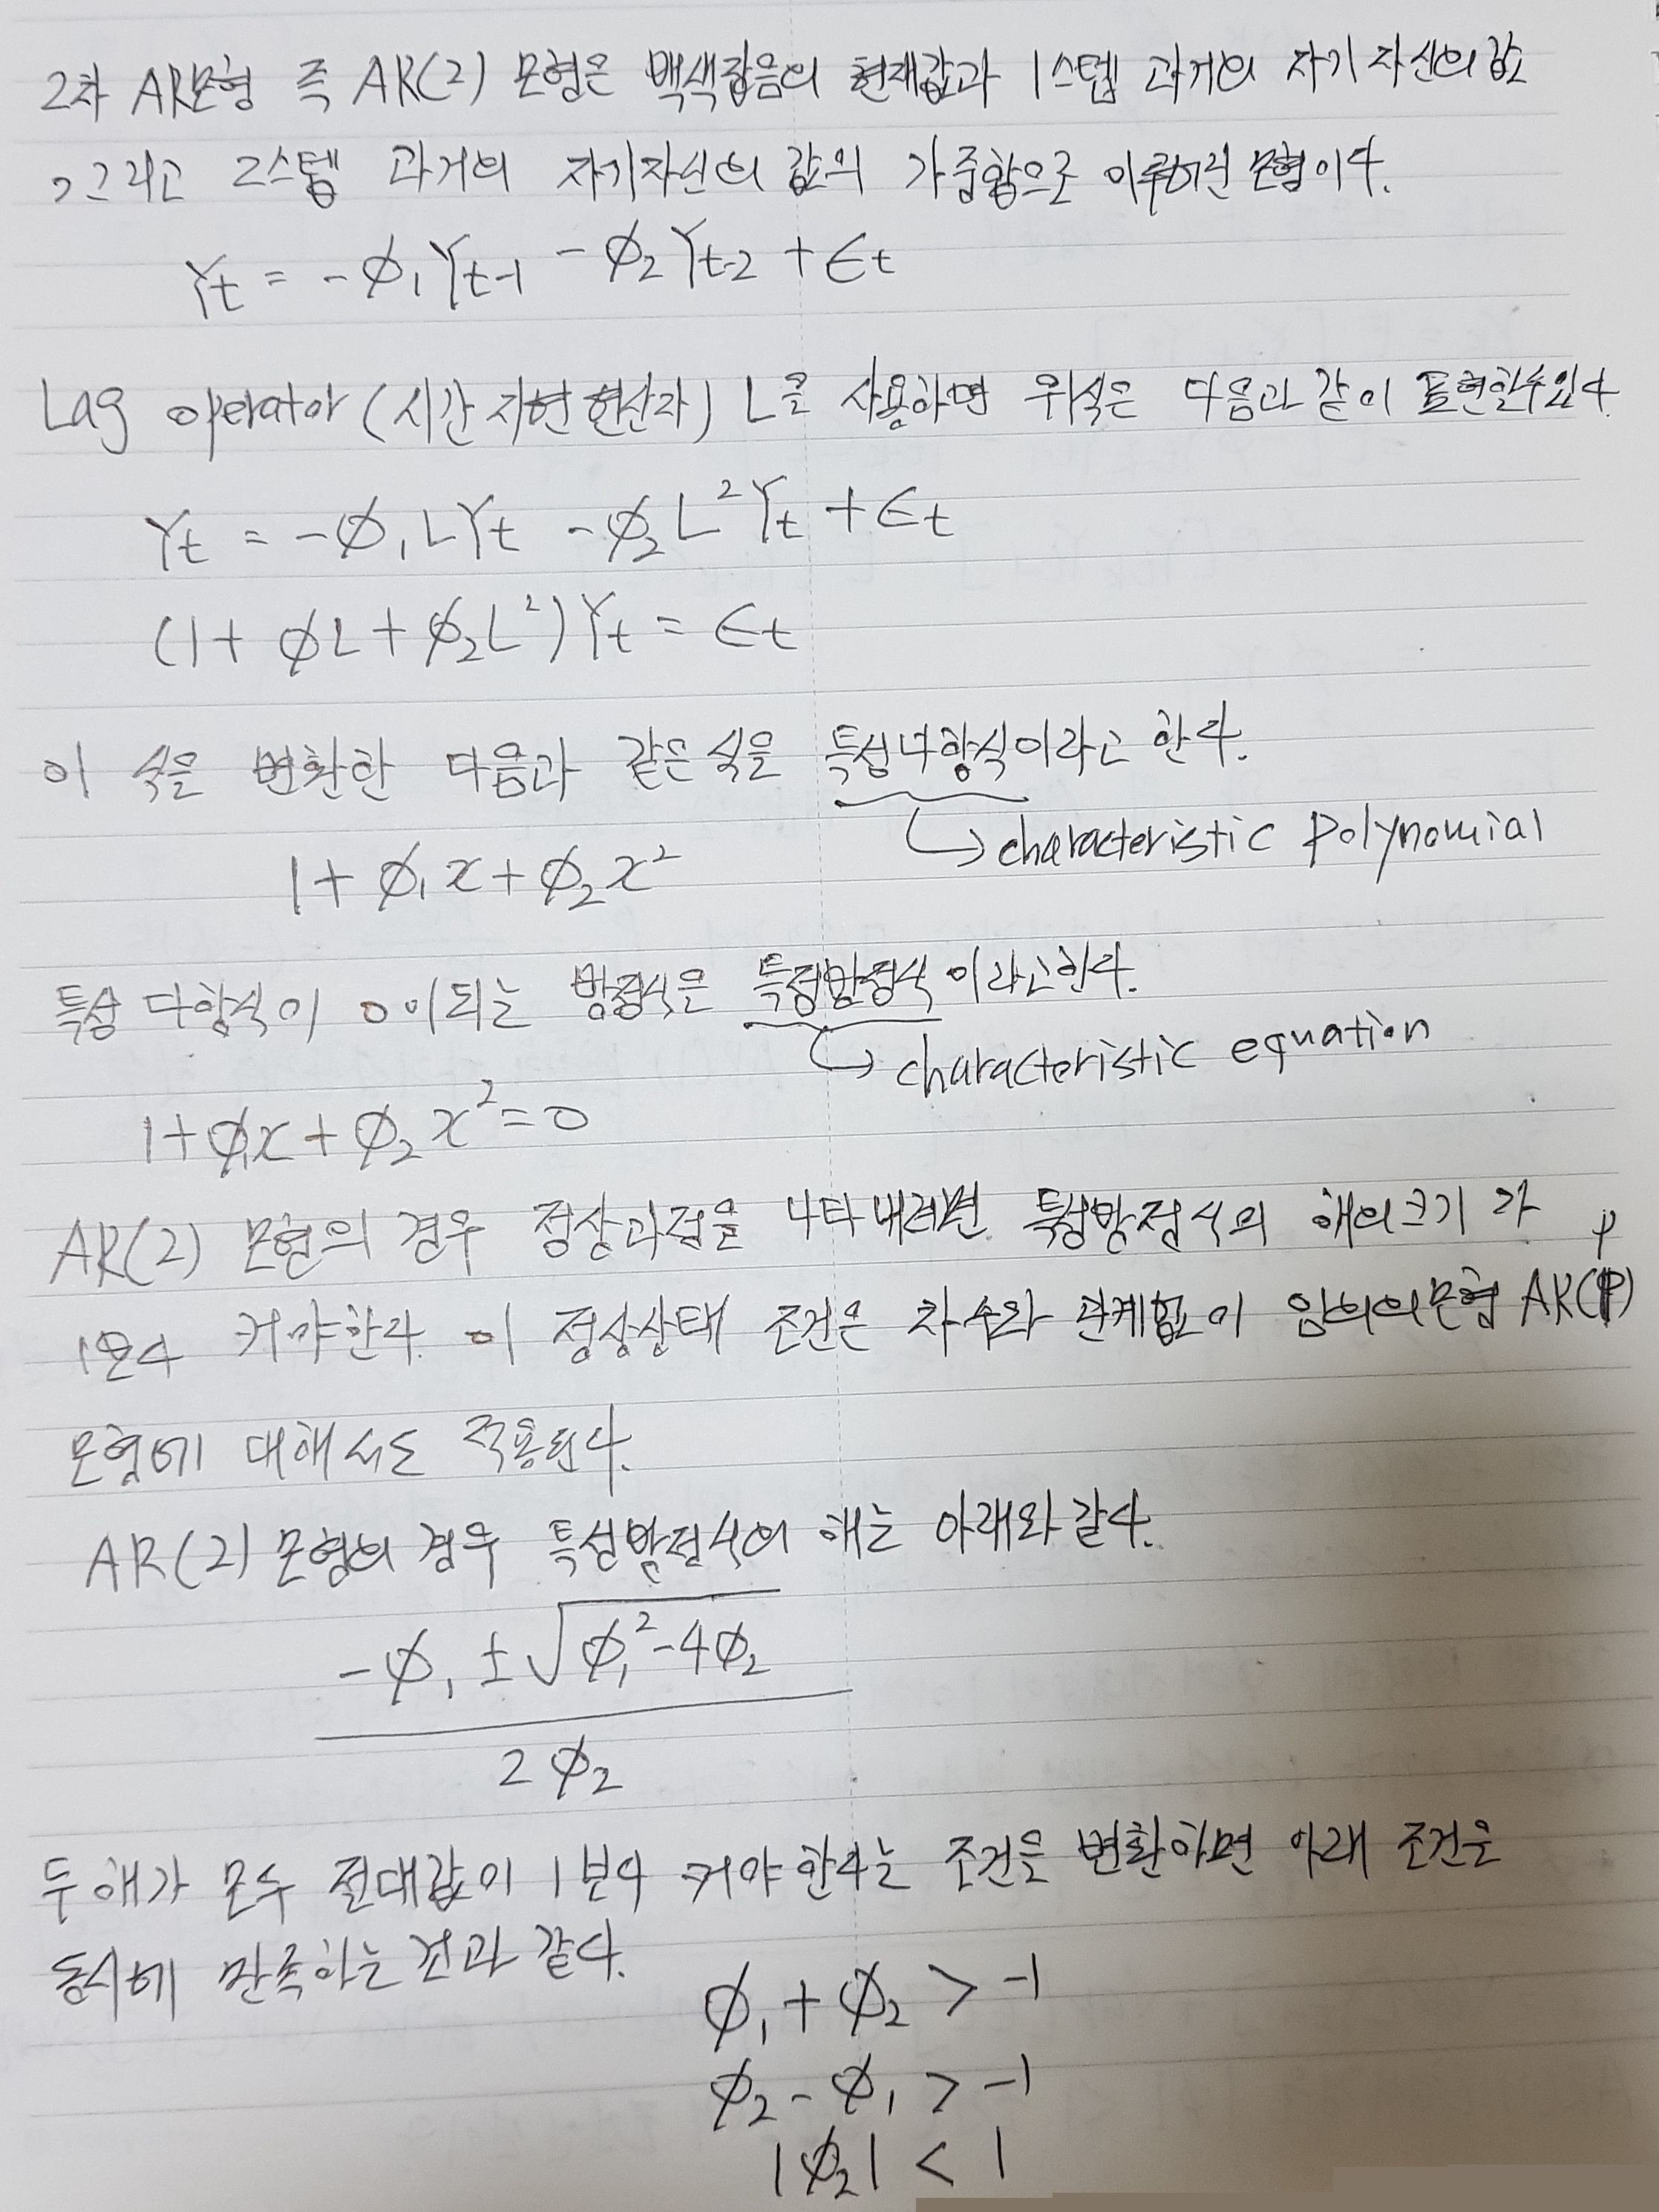 2차 AR모형 즉 AR(2) 모형은 백색잡음의 현재값과 1스텝 과거의 자기자신의 값
, 그리고 2스텝 과거의 자기자신의 값의 가중합으로 이루어진 모형이다.
Yt = -ø₁Yt-1 - ø₂Yt-2 + ϵt
Lag operator (시간 지현 현산자) L을 사용하면 위식은 다음과 같이 표현할수있다
Yt = -ø₁LYt - ø₂L²Yt + ϵt
(1 + øL + ø₂L²)Yt = ϵt
이 식을 변환한 다음과 같은 식을 특성다항식이라고 한다.
↳ characteristic polynomial
1 + ø₁x + ø₂x²
특성 다항식이 0이되는 방정식은 특정방정식 이라고한다.
↳ characteristic equation
1 + ø₁x + ø₂x² = 0
AR(2) 모형의 경우 정상과정을 나타내려면 특성방정식의 해의크기 가
1보다 커야한다. 이 정상상태 조건은 차수와 관계없이 임의의모형 AR(P)
모형에 대해서도 적용된다.
AR(2) 모형의 경우 특성방정식의 해는 아래와 같다.
-ø₁ ± √ø₁²-4ø₂
2ø₂
두 해가 모두 절대값이 1보다 커야 한다는 조건을 변환하면 아래 조건을
동시에 만족하는 것과 같다.
ø₁ + ø₂ > -1
ø₂ - ø₁ > -1
|ø₂| < 1